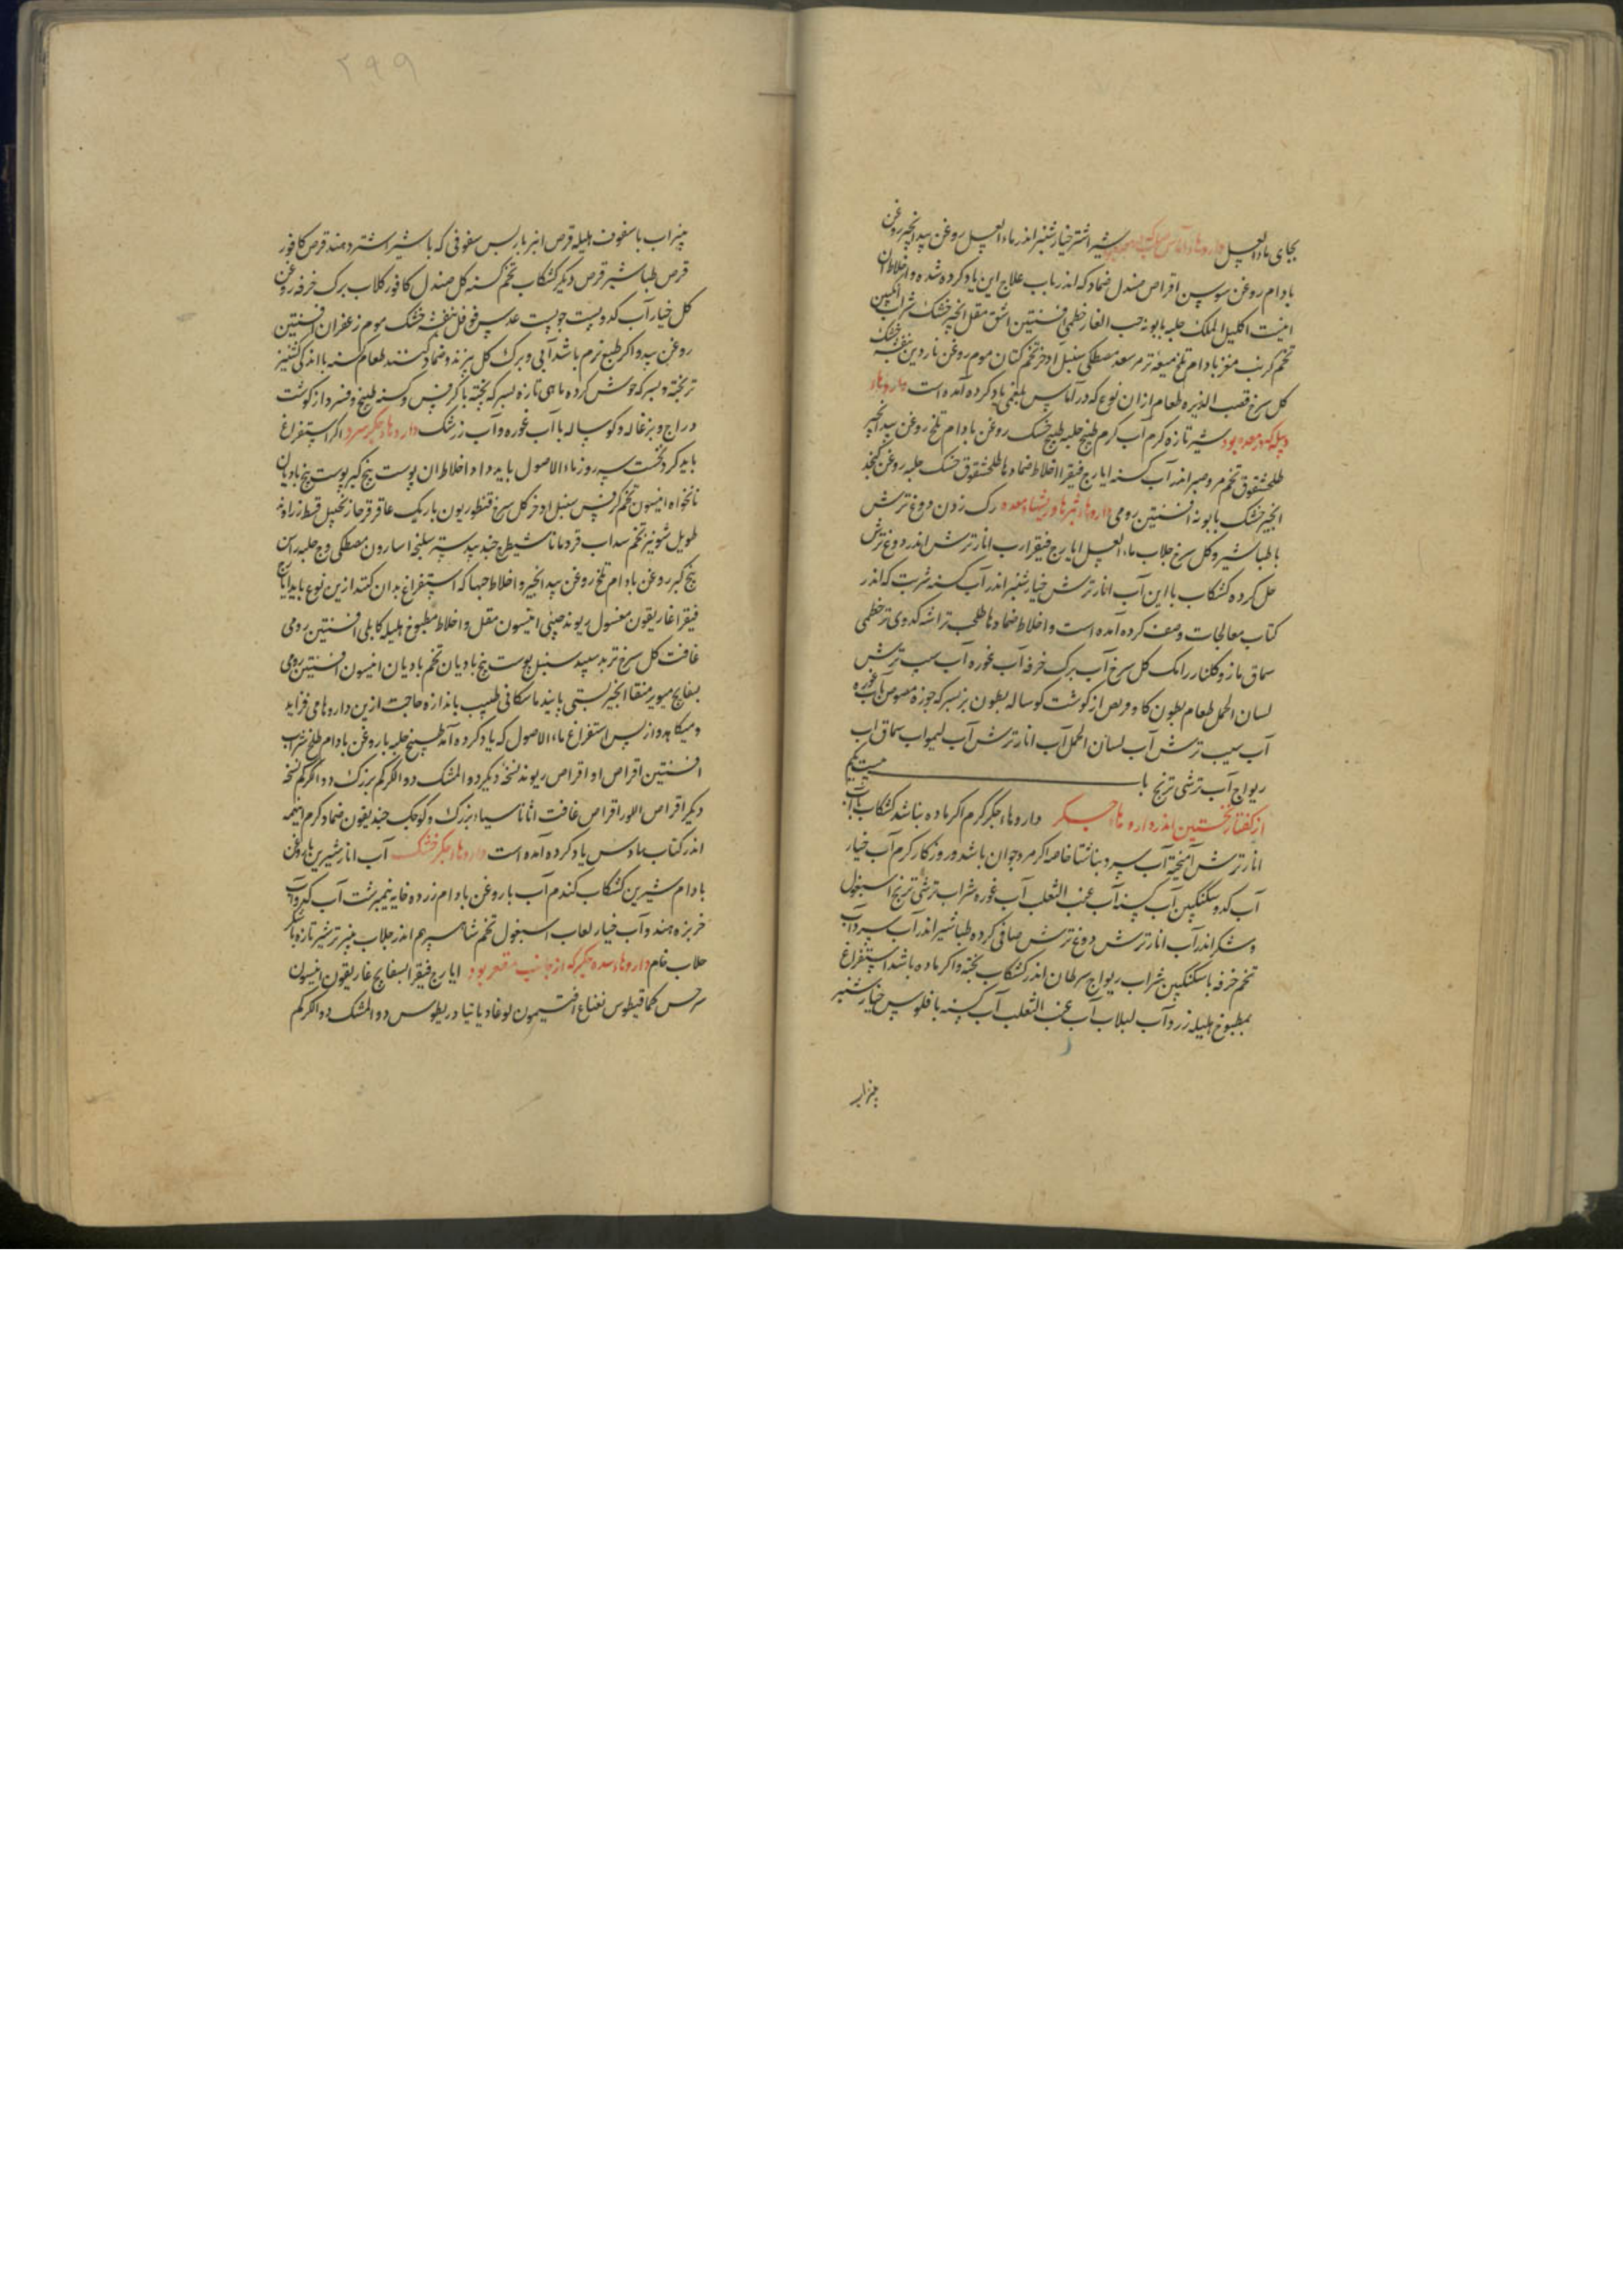 بجای ماء العسل داروهاء آماس شیر اشتر خیارشنبر اندر ماء العسل روغن بیدانجیر روغن
بادام روغن سوسن اقراص صندل ضماد که اندر باب علاج این یاد کرده شده و اخلاط آن
اینست اکلیل الملک حلبه بابونه حب الغار خطمی افسنتین اشق مقل انجیر خشک شراب انکبین
تخم کرنب مغز بادام تلخ میعه تر سعد مصطکی سنبل اذخر تخم کتان موم روغن ناردین بنفشه خشک
کل سرخ قصب الذریره طعام ازان نوع که در آماس بلغمی یاد کرده آمده است داروهاء
دبیله که در معده بود شیر تازه کرم آب کرم طبیخ حلبه طبیخ خشک روغن بادام تلخ روغن بیدانجیر
طلحشقوق تخم مرو صبر اندر آب کسنه ایارج فیقرا اخلاط ضمادها طلحشقوق خشک حلبه روغن کنجد
انجیر خشک بابونه افسنتین رومی داروهاء بثرها و ریشهاء معده رک زدن دوغ ترش
با طباشیر و کل سرخ جلاب ماء العسل ایارج فیقرا رب انار ترش اندر دوغ ترش
حل کرده کشکاب با این آب انار ترش خیارشنبر اندر آب کسنه شربت که اندر
کتاب معالجات وصف کرده آمده است و اخلاط ضمادها طحلب تراشه کدوی تر خطمی
سماق مازو کلنار رامک کل سرخ آب برک خرفه آب غوره آب سیب ترش
لسان الحمل طعام بطون کاو و قریص از کوشت کوساله بطون بز بسرکه جوزه مصوص آب غوره
آب سیب ترش آب لسان الحمل آب انار ترش آب لیمو آب سماق آب
ریواج آب ترشی ترنج باب بیست یکم
از کفتار نخستین اندر داروهاء جکر داروهاء جکر کرم اکر ماده نباشد کشکاب با آب
انار ترش آمیخته آب سرد بناشتا خاصه اکر مرد جوان باشد و روزکار کرم آب خیار
آب کدو سکنکبین آب کسنه آب عنب الثعلب آب غوره شراب ترشی ترنج اسبغول
و شکر اندر آب انار ترش دوغ ترش صافی کرده طباشیر اندر آب سرد آب
تخم خرفه با سکنکبین شراب ریواج سرطان اندر کشکاب پخته و اکر ماده باشد استفراغ
بمطبوخ هلیله زرد و آب لبلاب آب عنب الثعلب آب کسنه با فلوس خیارشنبر
پنیراب
۲۹۹
پنیراب با سفوف هلیله قرص انبرباریس سفوفی که با شیر اشتر دهند قرص کافور
قرص طباشیر قرص دیکر کشکاب تخم کسنه کل صندل کافور کلاب برک خرفه روغن
کل خیار آب کدو پست جو پست عدس فوفل بنفشه خشک موم زعفران افسنتین
روغن بید و اکر طبع نرم باشد آبی و برک کل بپزند و ضماد کنند طعام کسنه با اندکی کشنیز
تر پخته و بسرکه جوش کرده ماهی تازه بسرکه پخته با کرفس و کسنه طبیخ و فسرد از کوشت
دراج و بزغاله و کوساله با آب غوره و آب زرشک داروهاء جکر سرد اکر استفراغ
باید کرد نخست سه روز ماء الاصول باید داد اخلاط ان پوست بیخ کبر پوست بیخ بادیان
نانخواه انیسون تخم کرفس سنبل اذخر کل سرخ قنطوریون باریک عاقرقرحا زنجبیل قسط زراوند
طویل شونیز تخم سداب قردمانا شیطرج جندبیدستر سلیخه اسارون مصطکی وج حلبه راسن
بیخ کبر روغن بادام تلخ روغن بیدانجیر و اخلاط حبها که استفراغ بدان کنند ازین نوع باید ایارج
فیقرا غاریقون مغسول ریوند چینی انیسون مقل و اخلاط مطبوخ هلیله کابلی افسنتین رومی
غافت کل سرخ تربد سپید سنبل پوست بیخ بادیان تخم بادیان انیسون افسنتین رومی
بسفایج میویز منقا انجیر بستی پانید ماسکانی طبیب باندازه حاجت ازین داروها می فزاید
و میکاهد و از پس استفراغ ماء الاصول که یاد کرده آمد طبیخ حلبه با روغن بادام طلخ شراب
افسنتین اقراص او اقراص ریوند نسخه دیکر دواء المشک دواء الکرکم بزرک دواء الکرکم نسخه
دیکر اقراص اللوز اقراص غافت اثاناسیاء بزرک و کوچک جندیقون ضماد کرم اینهمه
اندر کتاب یاد کرده آمده است داروهاء جکر خشک آب انار شیرین با روغن
بادام شیرین کشکاب کندم آب با روغن بادام زرده خایه نیمبرشت آب کدو آب
خربزه هندو آب خیار لعاب اسبغول تخم شاهسپرهم اندر جلاب پنیر تر شیر تازه با شکر
جلاب خام داروهاء سده جکر که از جانب مقعر بود ایارج فیقرا بسفایج غاریقون انیسون
سرخس کمافیطوس نعناع افتیمون لوغادیا تیادریطوس دواء المشک دواء الکرکم